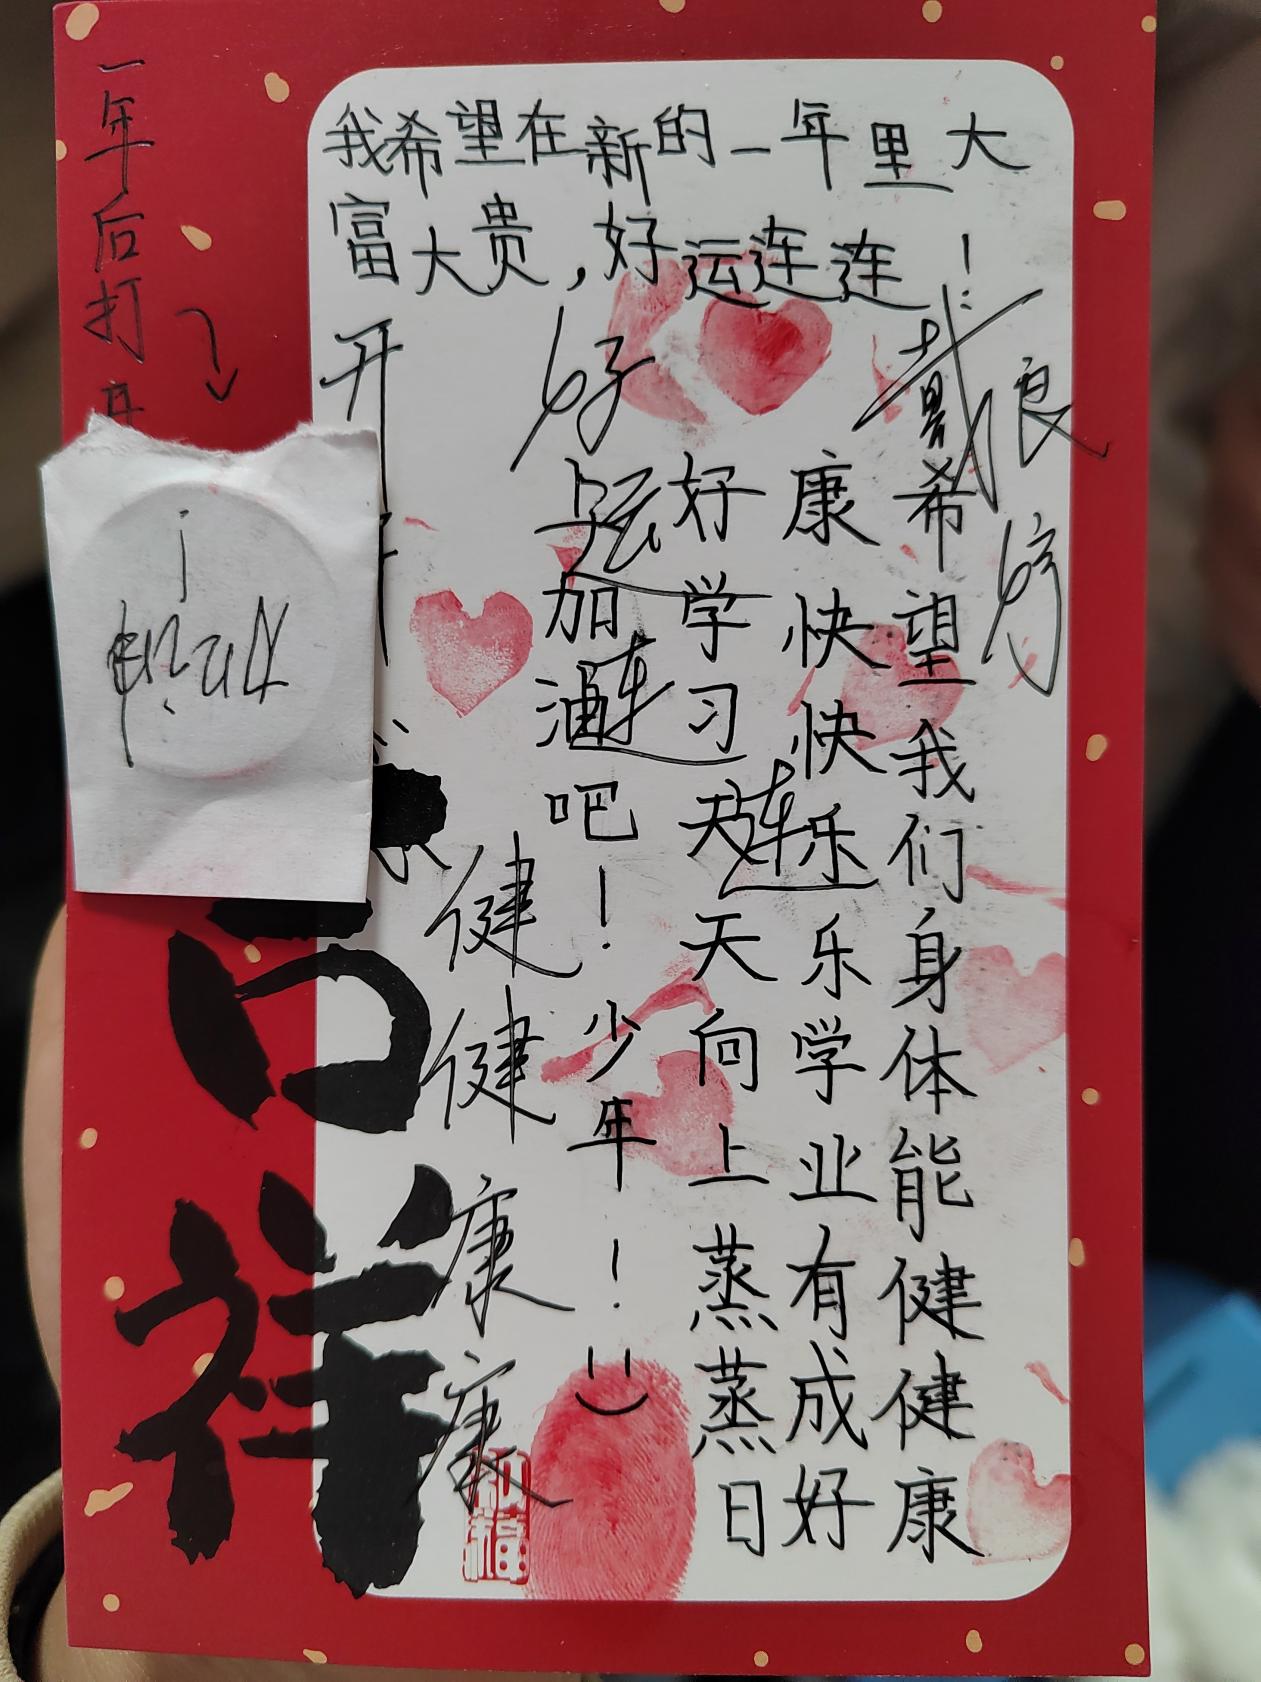 我希望在新的一年里大
富大贵，好运连连！
希望我们身体能健健康
康快快乐乐学业有成好
好学习天天向上蒸蒸日
上加油吧！少年！
好运连连
健健康康
一年后打开
祥